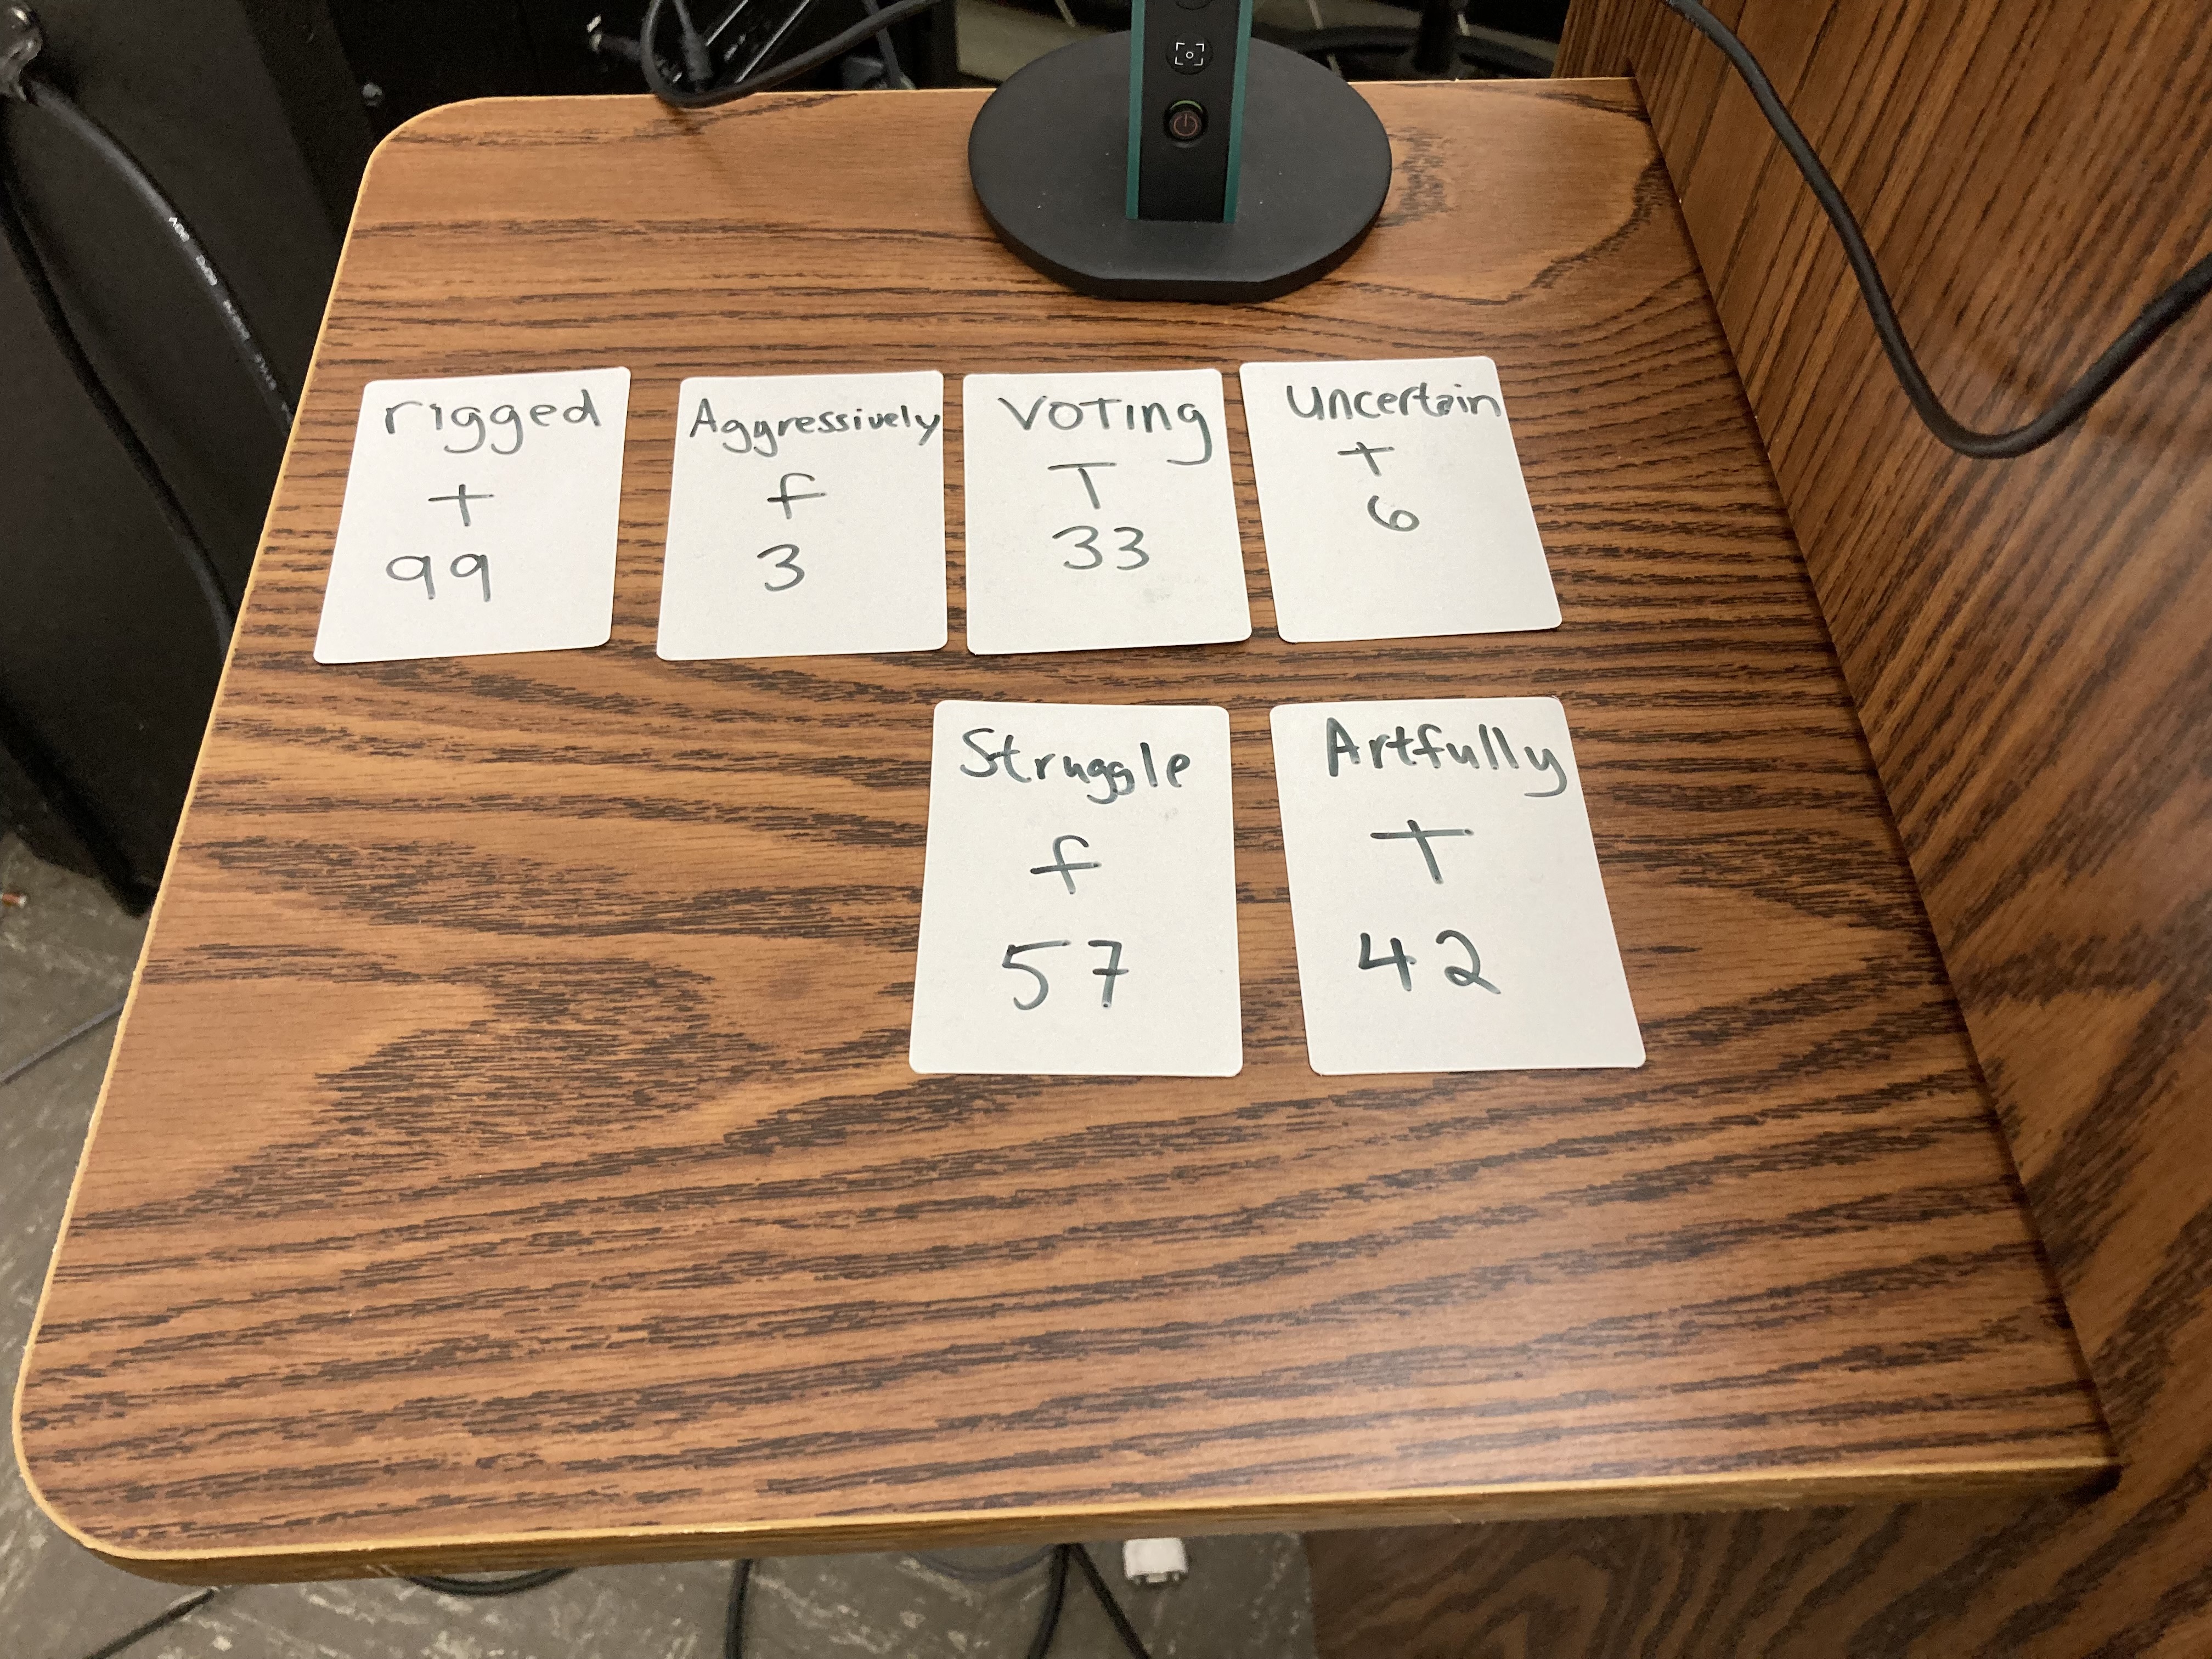 rigged
t
99
Aggressively
f
3
VOTING
T
33
Uncertain
t
6
Struggle
f
57
Artfully
T
42